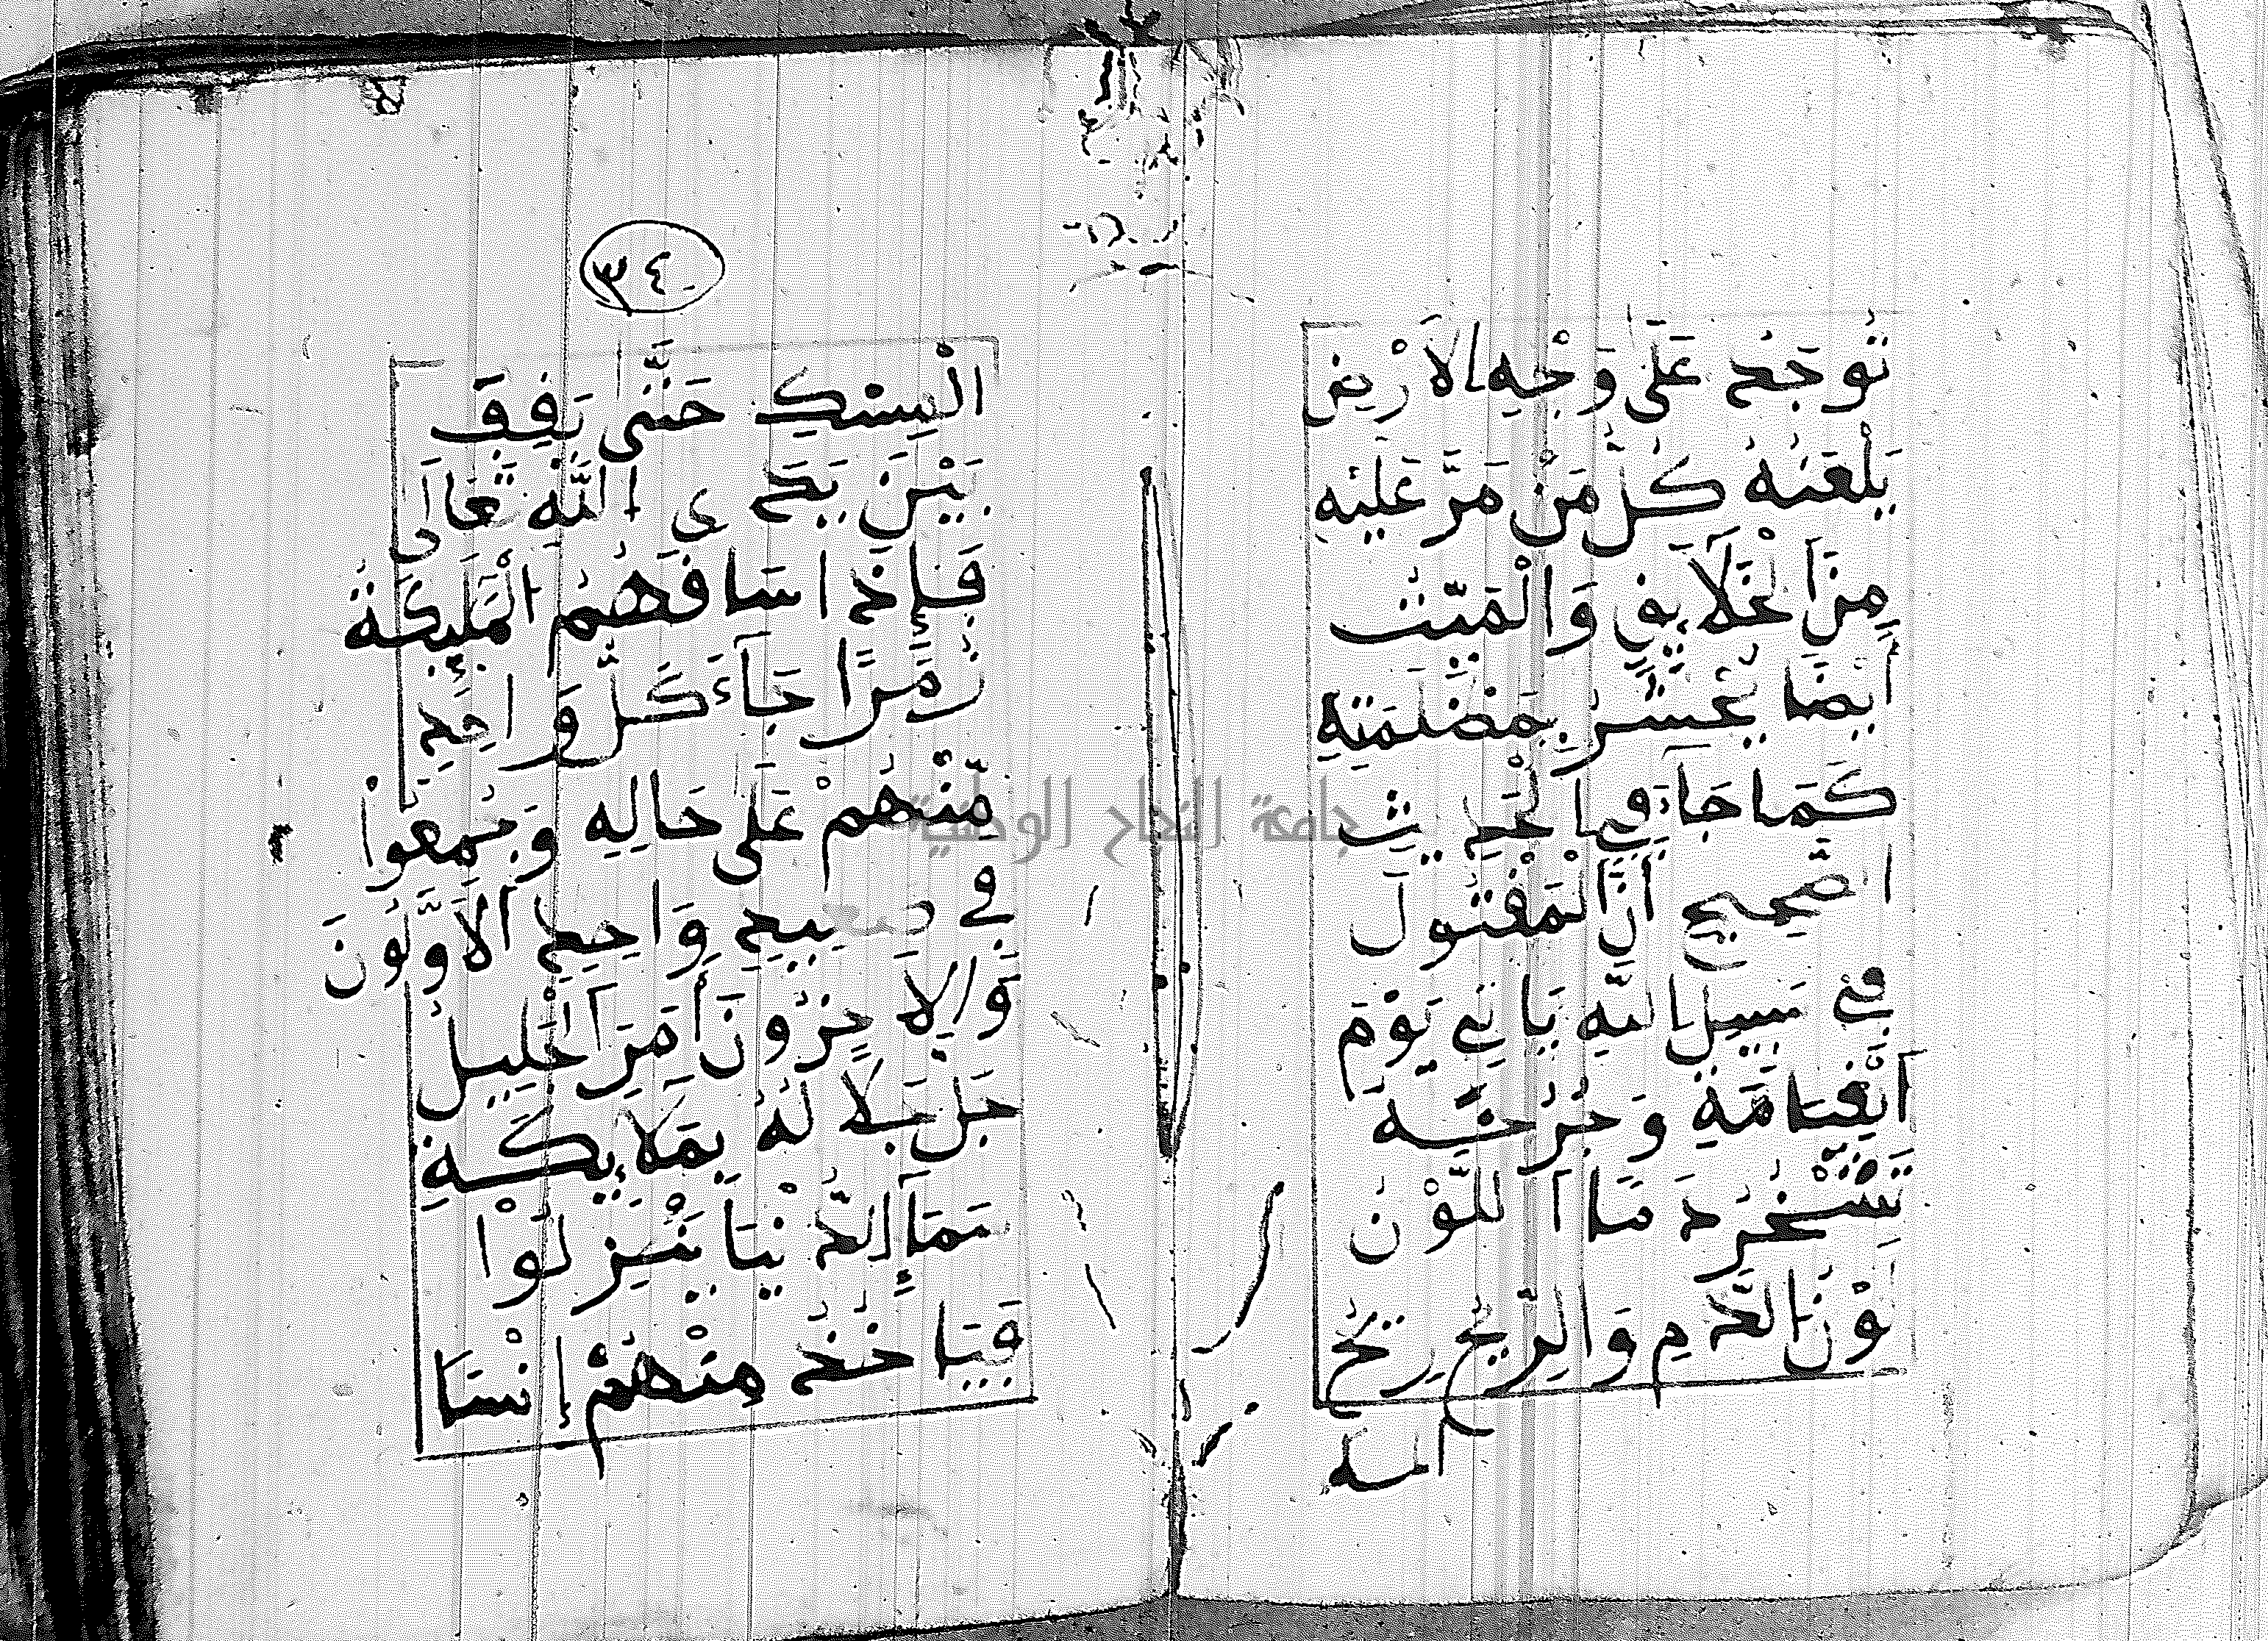 تُوجَدُ عَلَى وَجْهِ الاَرْضِ
يَلْعَنُهُ كُلُّ مَنْ مَرَّ عَلَيْهِ
مِنَ الْخَلَايِقِ وَالْمَيِّتُ
اَيْضًا يُحْشَرُ بِمَضْلَمَتِهِ
كَمَا جَآءَ فِي الْحَدِيثِ
الصَّحِيحِ اَنَّ الْمَقْتُولَ
فِي سَبِيلِ اللَّهِ يَاتِي يَوْمَ
الْقِيَامَةِ وَجُرْحُهُ
تَشْخُرُ دَمَا اَللَّوْنُ
لَوْنُ الدَّمِ وَالرِّيحُ رِيحُ
المسك
٣٤
الْمِسْكِ حَتَّى يَقِفَ
بَيْنَ يَدَي اللَّهِ تَعَالَى
فَإِذَا سَاقَهُمُ الْمَلَئِكَةُ
زُمَرًا جَآءَ كُلُّ وَاحِدٍ
مِّنْهُمْ عَلَى حَالِهِ وَجُمِعُوا
فِي صَعِيدٍ وَاحِدٍ الاَوَّلُونَ
وَالاَخِرُونَ اَمَرَ الْجَلِيلُ
جَلَّ جَلَالُهُ بِمَلَائِكَةِ
سَمَآءِ الدُّنْيَا يَنْزِلُوا
فَيَاخُذُ مِنْهُمْ إِنْسَا
جامعة النجاح الوطنية